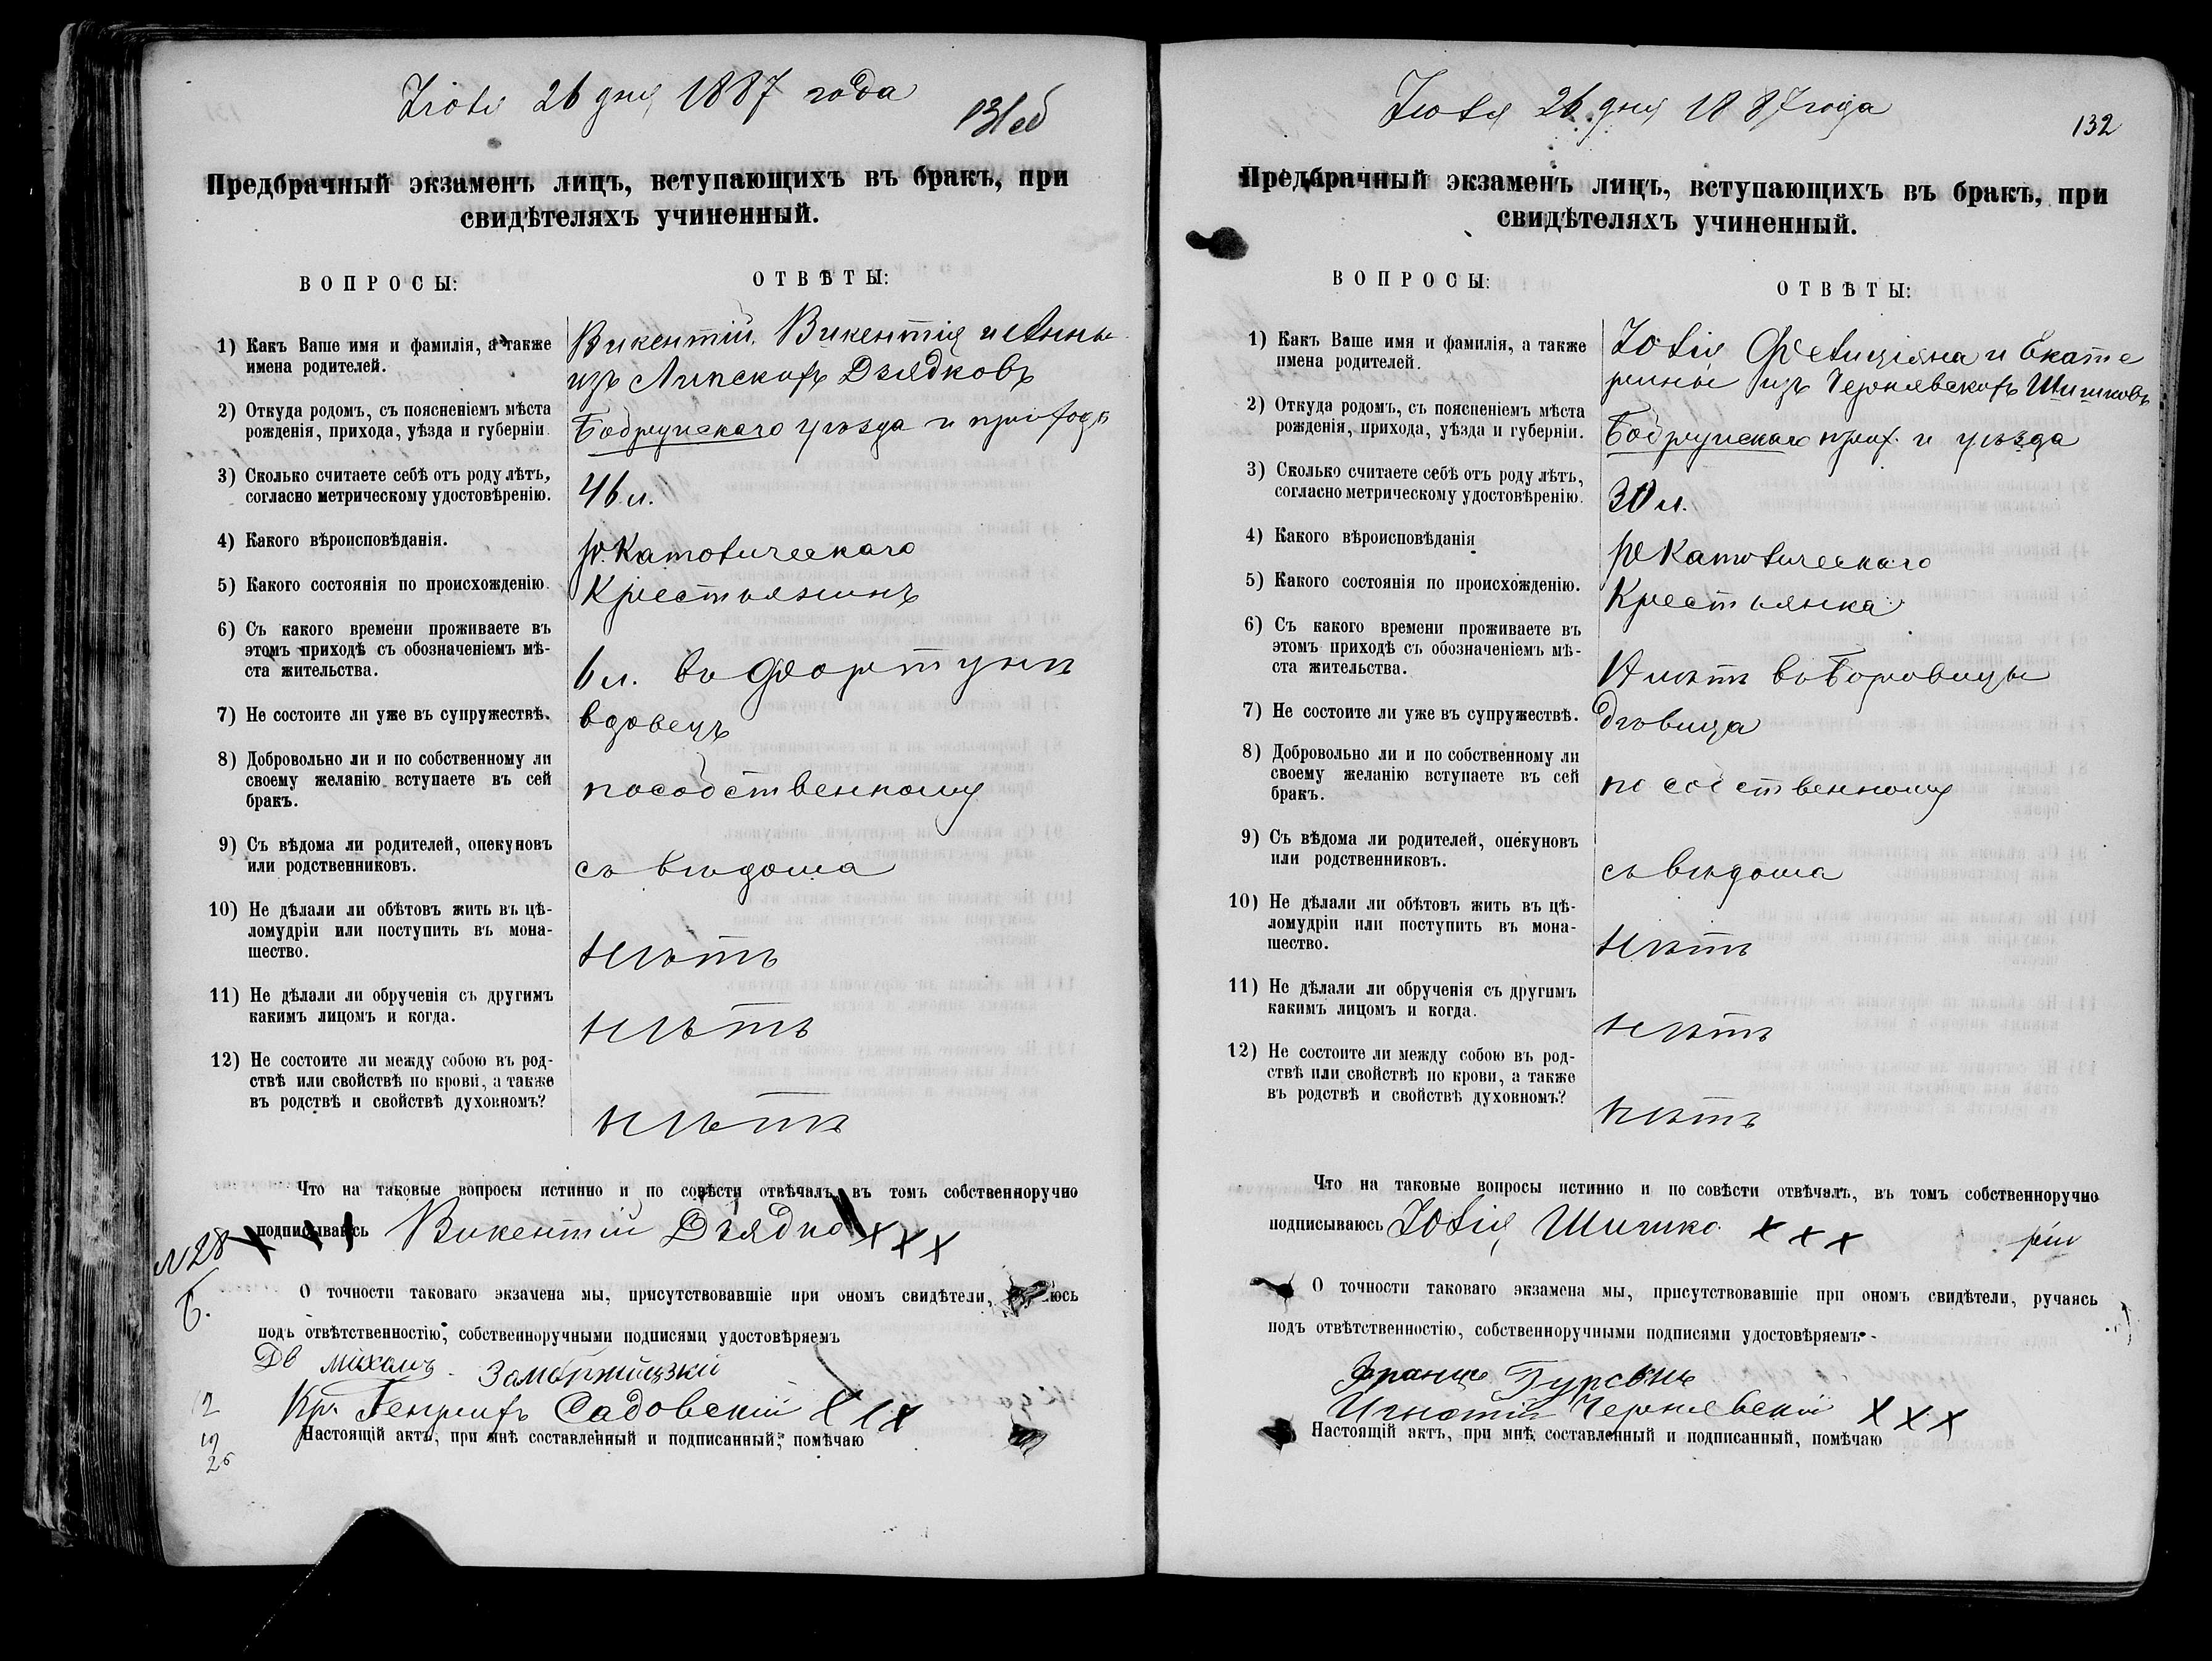 Іюля 26 дня 1887 года
131 об
Предбрачный экзаменъ лицъ, вступающихъ въ бракъ, при
свидѣтеляхъ учиненный.
ВОПРОСЫ:
ОТВѢТЫ:
1) Какъ Ваше имя и фамилія, а также
имена родителей.
Викентій, Викентія и Анны
изъ Липскихъ Дзядковъ
2) Откуда родомъ, съ поясненіемъ мѣста
рожденія, прихода, уѣзда и губерніи
Бобруйскаго уѣзда и прихода
3) Сколько считаете себѣ отъ роду лѣтъ,
согласно метрическому удостовѣренію.
46 л.
4) Какого вѣроисповѣданія.
р. Католическаго
5) Какого состоянія по происхожденію.
Крестьянинъ
6) Съ какого времени проживаете въ
этомъ приходѣ съ обозначеніемъ мѣ-
ста жительства.
6 л. въ Фортунѣ
7) Не состоите ли уже въ супружествѣ.
вдовецъ
8) Добровольно ли и по собственному ли
своему желанію вступаете въ сей
бракъ.
по собственному
9) Съ вѣдома ли родителей, опекуновъ
или родственниковъ.
съ вѣдома
10) Не дѣлали ли обѣтовъ жить въ цѣ-
ломудріи или поступить въ мона-
шество.
нѣтъ
11) Не дѣлали ли обрученія съ другимъ
какимъ лицомъ и когда.
нѣтъ
12) Не состоите ли между собою въ род-
ствѣ или свойствѣ по крови, а также
въ родствѣ и свойствѣ духовномъ?
нѣтъ
Что на таковые вопросы истинно и по совѣсти отвѣчалъ, въ томъ собственноручно
подписываюсь Викентій Дзядко х х х
N 28
О точности таковаго экзамена мы, присутствовавшіе при ономъ свидѣтели,
подъ отвѣтственностію, собственноручными подписями удостовѣряемъ
Дв Михаилъ
Кр. Генрихъ Садовскій х х х
Настоящій актъ, при мнѣ составленный и подписанный, помѣчаю
Іюля 26 дня 1887 года
132
Предбрачный экзаменъ лицъ, вступающихъ въ бракъ, при
свидѣтеляхъ учиненный.
ВОПРОСЫ:
ОТВѢТЫ:
1) Какъ Ваше имя и фамилія, а также
имена родителей.
Юлія Фелиціяна и Екате
рины изъ Чернявскихъ Шишковъ
2) Откуда родомъ, съ поясненіемъ мѣста
рожденія, прихода, уѣзда и губерніи.
Бобруйскаго прих. и уѣзда
3) Сколько считаете себѣ отъ роду лѣтъ,
согласно метрическому удостовѣренію.
30 л.
4) Какого вѣроисповѣданія
р Католическаго
5) Какого состоянія по происхожденію.
Крестьянка
6) Съ какого времени проживаете въ
этомъ приходѣ съ обозначеніемъ мѣ-
ста жительства.
лѣтъ въ Боровицы
7) Не состоите ли уже въ супружествѣ.
дѣвица
8) Добровольно ли и по собственному ли
своему желанію вступаете въ сей
бракъ.
по собственному
9) Съ вѣдома ли родителей, опекуновъ
или родственниковъ.
съ вѣдома
10) Не дѣлали ли обѣтовъ жить въ цѣ-
ломудріи или поступить въ мона-
шество.
нѣтъ
11) Не дѣлали ли обрученія съ другимъ
какимъ лицомъ и когда.
нѣтъ
12) Не состоите ли между собою въ род-
ствѣ или свойствѣ по крови, а также
въ родствѣ и свойствѣ духовномъ?
нѣтъ
Что на таковые вопросы истинно и по совѣсти отвѣчалъ, въ томъ собственноручно
подписываюсь Юлія Шишко х х х
О точности таковаго экзамена мы, присутствовавшіе при ономъ свидѣтели, ручаясь
подъ отвѣтственностію, собственноручными подписями удостовѣряемъ
Игнатій Чернявскій х х х
Настоящій актъ, при мнѣ составленный и подписанный, помѣчаю